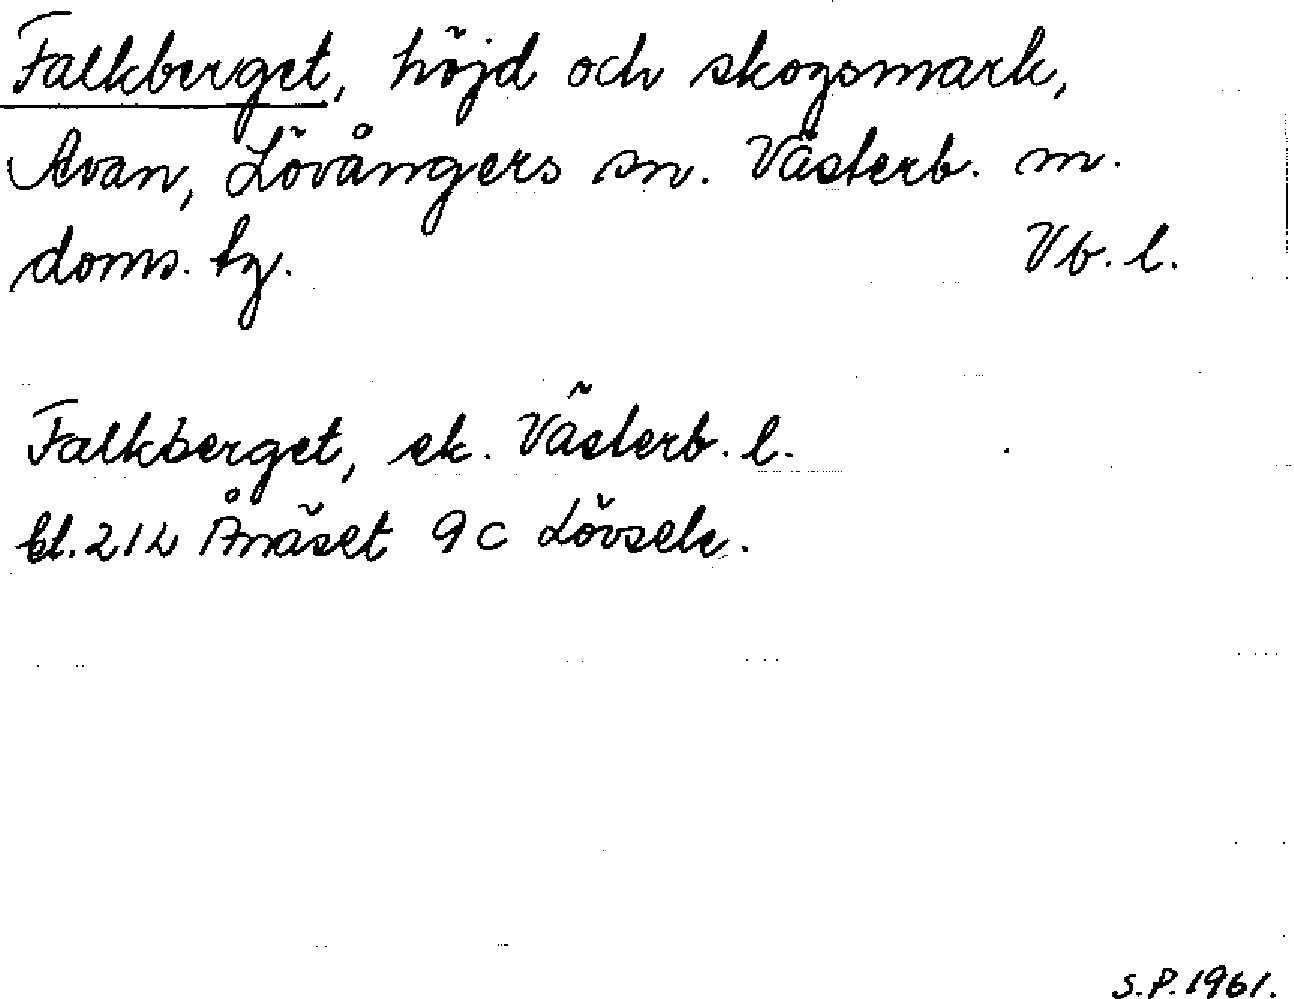 Falkberget, höjd och skogsmark,
Avan, Lövångers sn. Västerb. m.
doms. tg. Vb. l.
Falkberget, ek. Västerb. l.
bl. 21L Ånäset 9c Lövsele.
S.P. 1961.